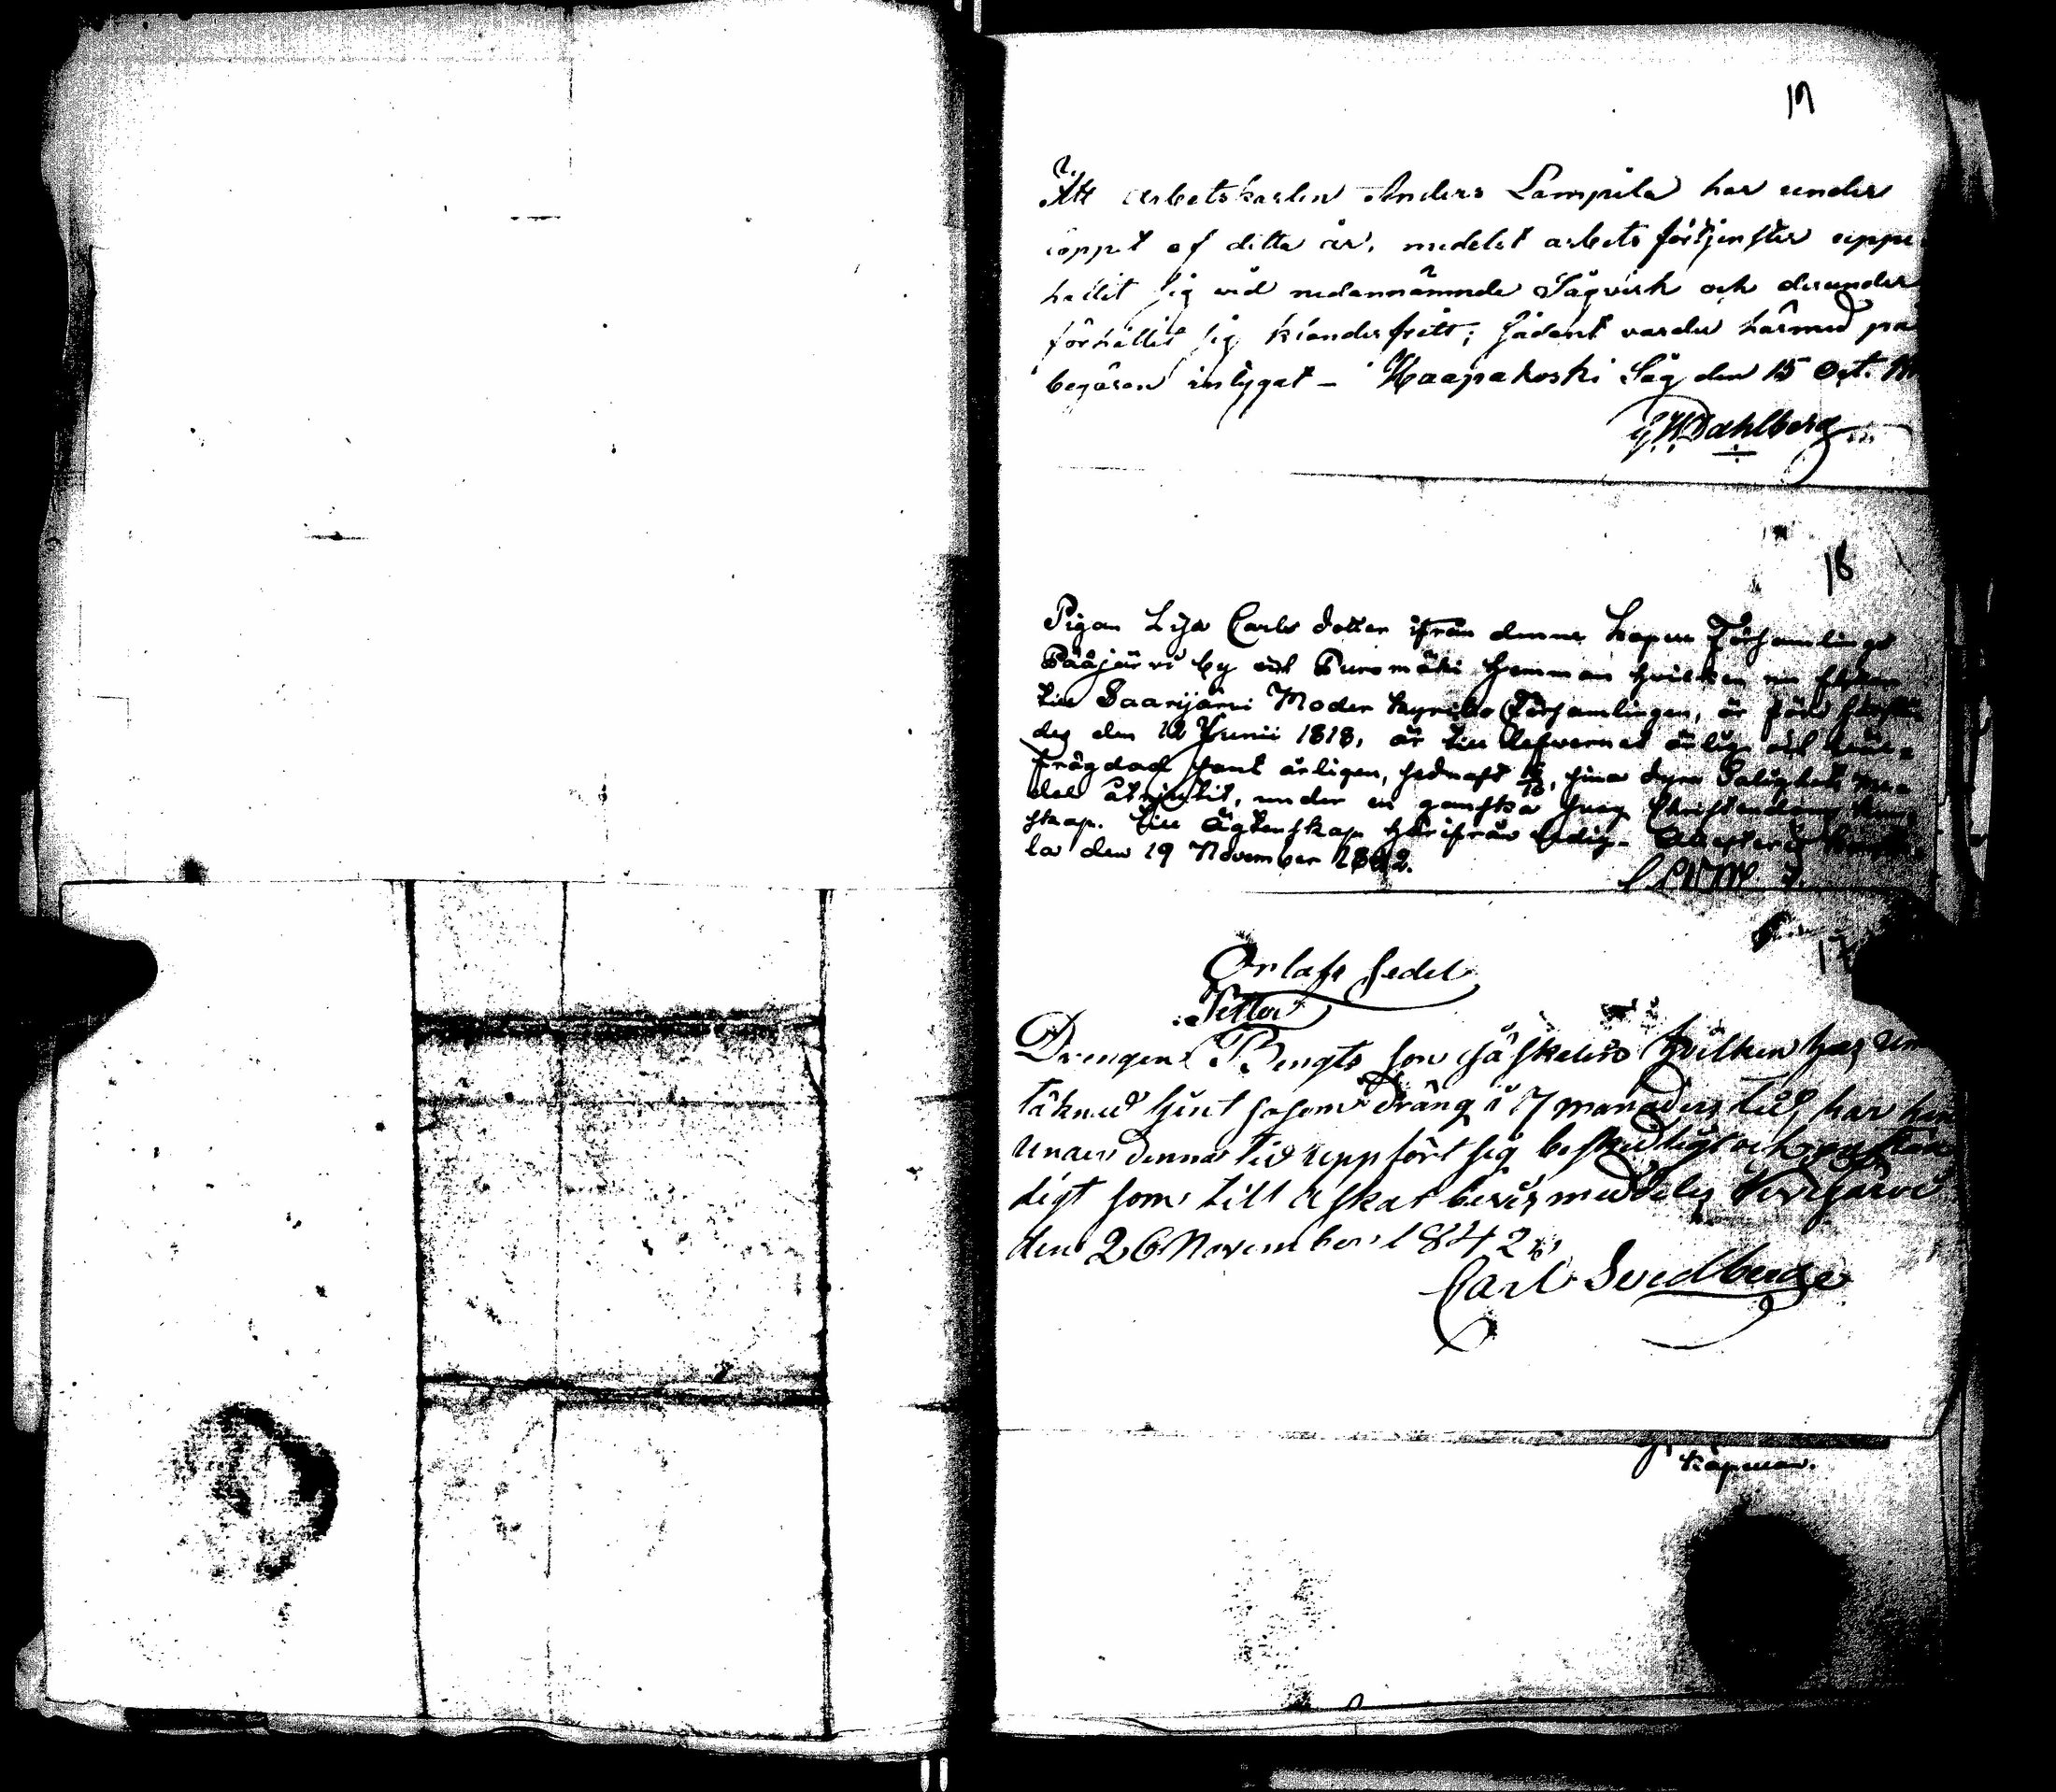 19
Att arbetskarlen Anders Lampila har under
loppet af detta år, medelst arbets förtjenster uppe
hållit sig vid nedannämnde Sågverk och derunder
förhållit sig klanderfritt; sådant varder härmed på
begäran intygat – Haapakoski Såg den 15 Oct.
Dahlberg
18
Pigan Lisa Carls dotter ifrån denne Capell Församlings
Pääjärvi by och Puromäki hemman hvilken nu flyttar
till Saarijärvi Moder kyrko Församlingen, är född
den 12 Junii 1818, är till lefvernet ärlig och
frägdad samt årligen, sednast, sina dyra Salighets me
del åtnjutit, under en ganska svag Christendoms kun
skap. till Ägtenskap härifrån ledig.
la den 19 November 1842.
17
Orlafs sedel
Petter
Drengen Bengts son hvilken har un
täknad tjent såsom Dräng i 7 månaders tid, har han
under denna tid uppfört sig beskedligt och
ligt som till åskat bevis meddeles
den 26 November 1842
Carl Svedberg
Kapellan.